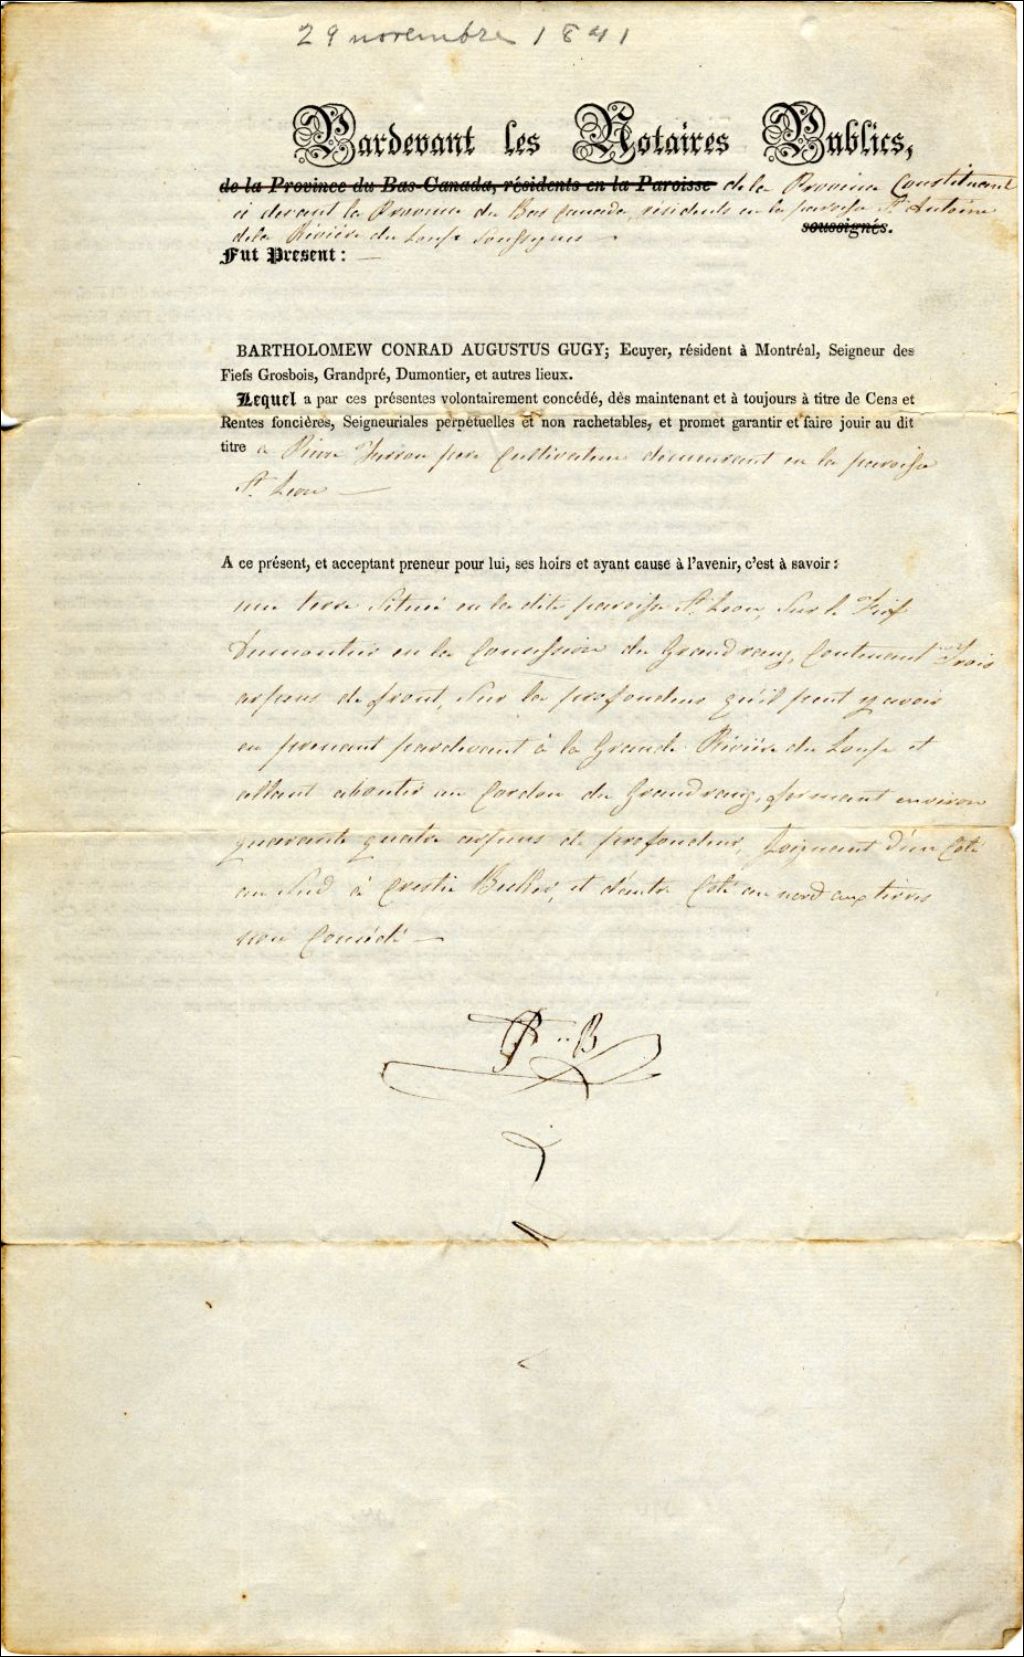 29 novembre 1841
Pardevant les Notaires Publics,
de la Province du Bas-Canada, résidents en la Paroisse de la Province Constituant
ci devant la Province du Bas Canada, résidents en la paroisse St Antoine
de la Rivière du Loup soussignés
soussignés.
Fut Present : —
BARTHOLOMEW CONRAD AUGUSTUS GUGY; Ecuyer, résident à Montréal, Seigneur des
Fiefs Grosbois, Grandpré, Dumontier, et autres lieux.
Lequel a par ces présentes volontairement concédé, dès maintenant et à toujours à titre de Cens et
Rentes foncières, Seigneuriales perpétuelles et non rachetables, et promet garantir et faire jouir au dit
titre a père Cultivateur demeurant en la paroisse
St Leon —
A ce présent, et acceptant preneur pour lui, ses hoirs et ayant cause à l'avenir, c'est à savoir :
une terre située en la dite paroisse St Leon, sur le Fief
Dumontier en la Concession du Grand rang, Contenant Trois
arpens de front, sur la profondeur qu'il peut y avoir
en prenant pardevant à la Grande Rivière du Loup et
allant aboutir au Cordon du Grand rang, formant environ
quarante quatre arpens de profondeur, Joignant d'un Coté
au Sud à et d'autre Coté au nord aux terres
non Concédé —
P .. B